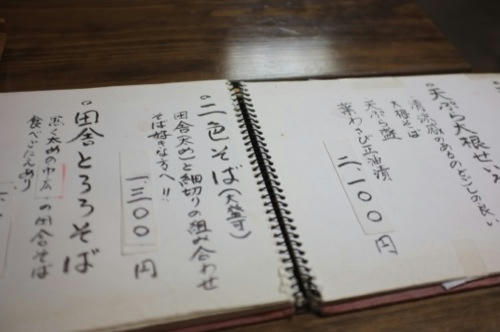 天ぷら大根せいろ
清涼感のあるのどごしの良い
大根そば
天ぷら盛
葉わさび正油漬
二、一〇〇円
二色そば(大盛可)
田舎(太め)と細切りの組み合わせ
そば好きな方へ!!
一、三〇〇円
田舎とろろそば
黒く太めの中太の田舎そば
食べごたえあり